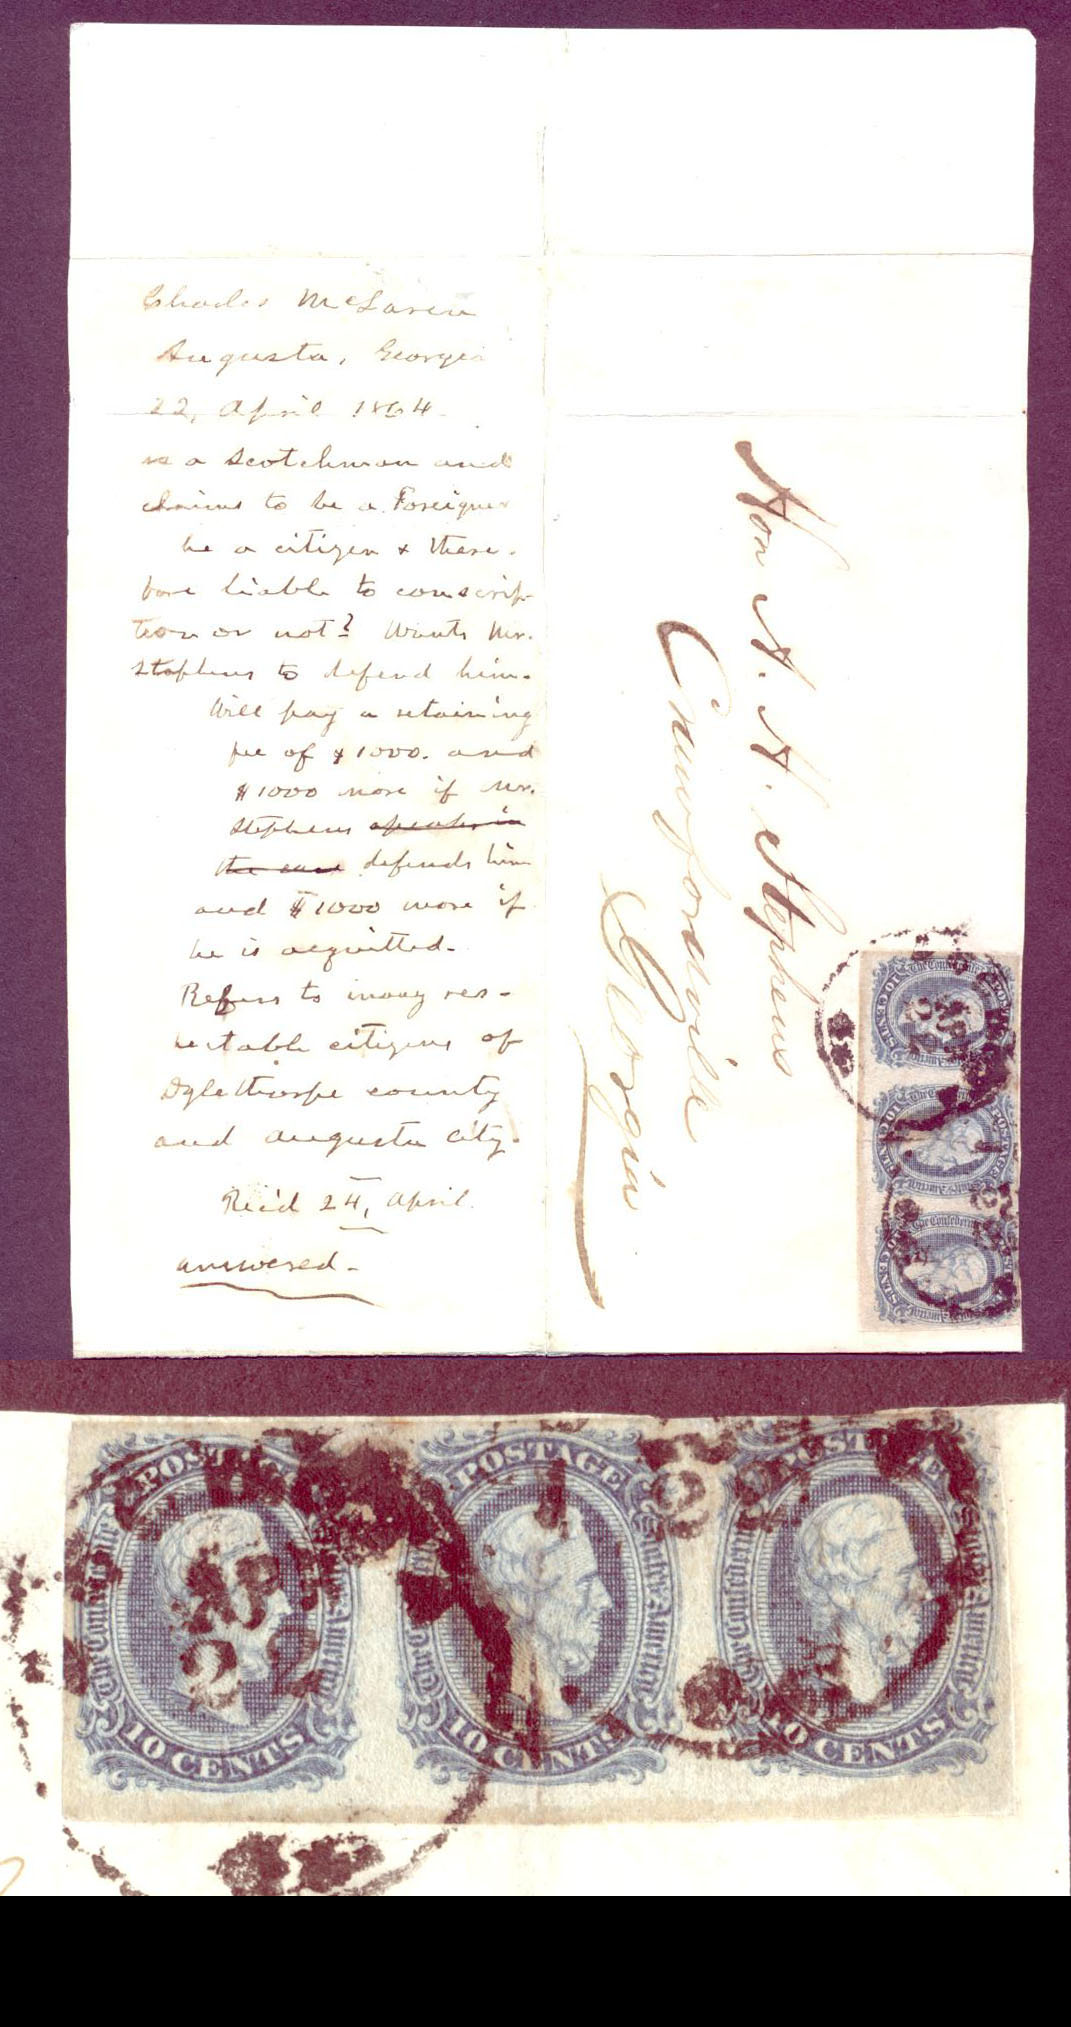 Charles McLaren
Augusta, Georgia
22, April 1864.
is a Scotchman and
claims to be a Foreigner
he a citizen & there-
fore liable to conscrip-
tion or not? Wants Mr.
Stephens to defend him.
Will pay a retaining
fee of $1000. and
$1000 more if Mr.
Stephens speaks in
the case defends him
and $1000 more if
he is acquitted.
Refers to many res-
pectable citizens of
Oglethorpe county
and Augusta city.
Rec'd 24, April.
answered.
Hon A. H. Stephens
Crawfordville
Georgia
POSTAGE
The Confederate States of America
10 CENTS
POSTAGE
10 CENTS
POSTAGE
The Confederate States of America
10 CENTS
AP
22